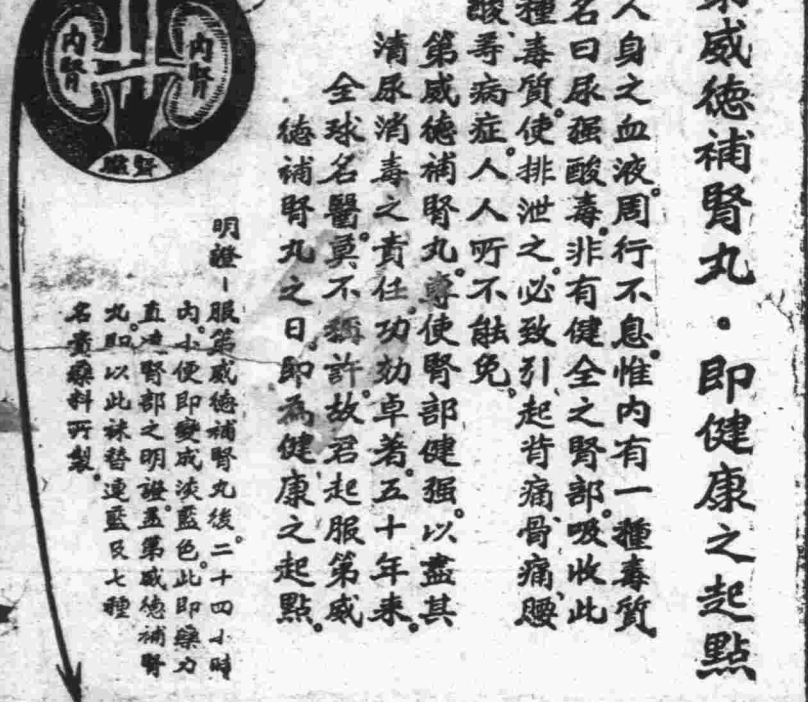 威德補腎丸·即健康之起點
人身之血液。周行不息。惟內有一種毒質
名曰尿强酸毒。非有健全之腎部。吸收此
種毒質。使排泄之。必致引起背痛、骨痛、腰
酸、等病症。人人所不能免。
第威德補腎丸。專使腎部健强。以盡其
清尿消毒之責任。功効卓著。五十年來。
全球名醫。莫不稱許。故君起服第威
德補腎丸之日。即為健康之起點。
明證-服第威德補腎丸後。二十四小時
內。小便即變成淡藍色。此即藥力
直達腎部之明證。盖第威德補腎
丸。即以此袜替連藍及七種
名貴藥料所製。
內腎
內腎
腎膛